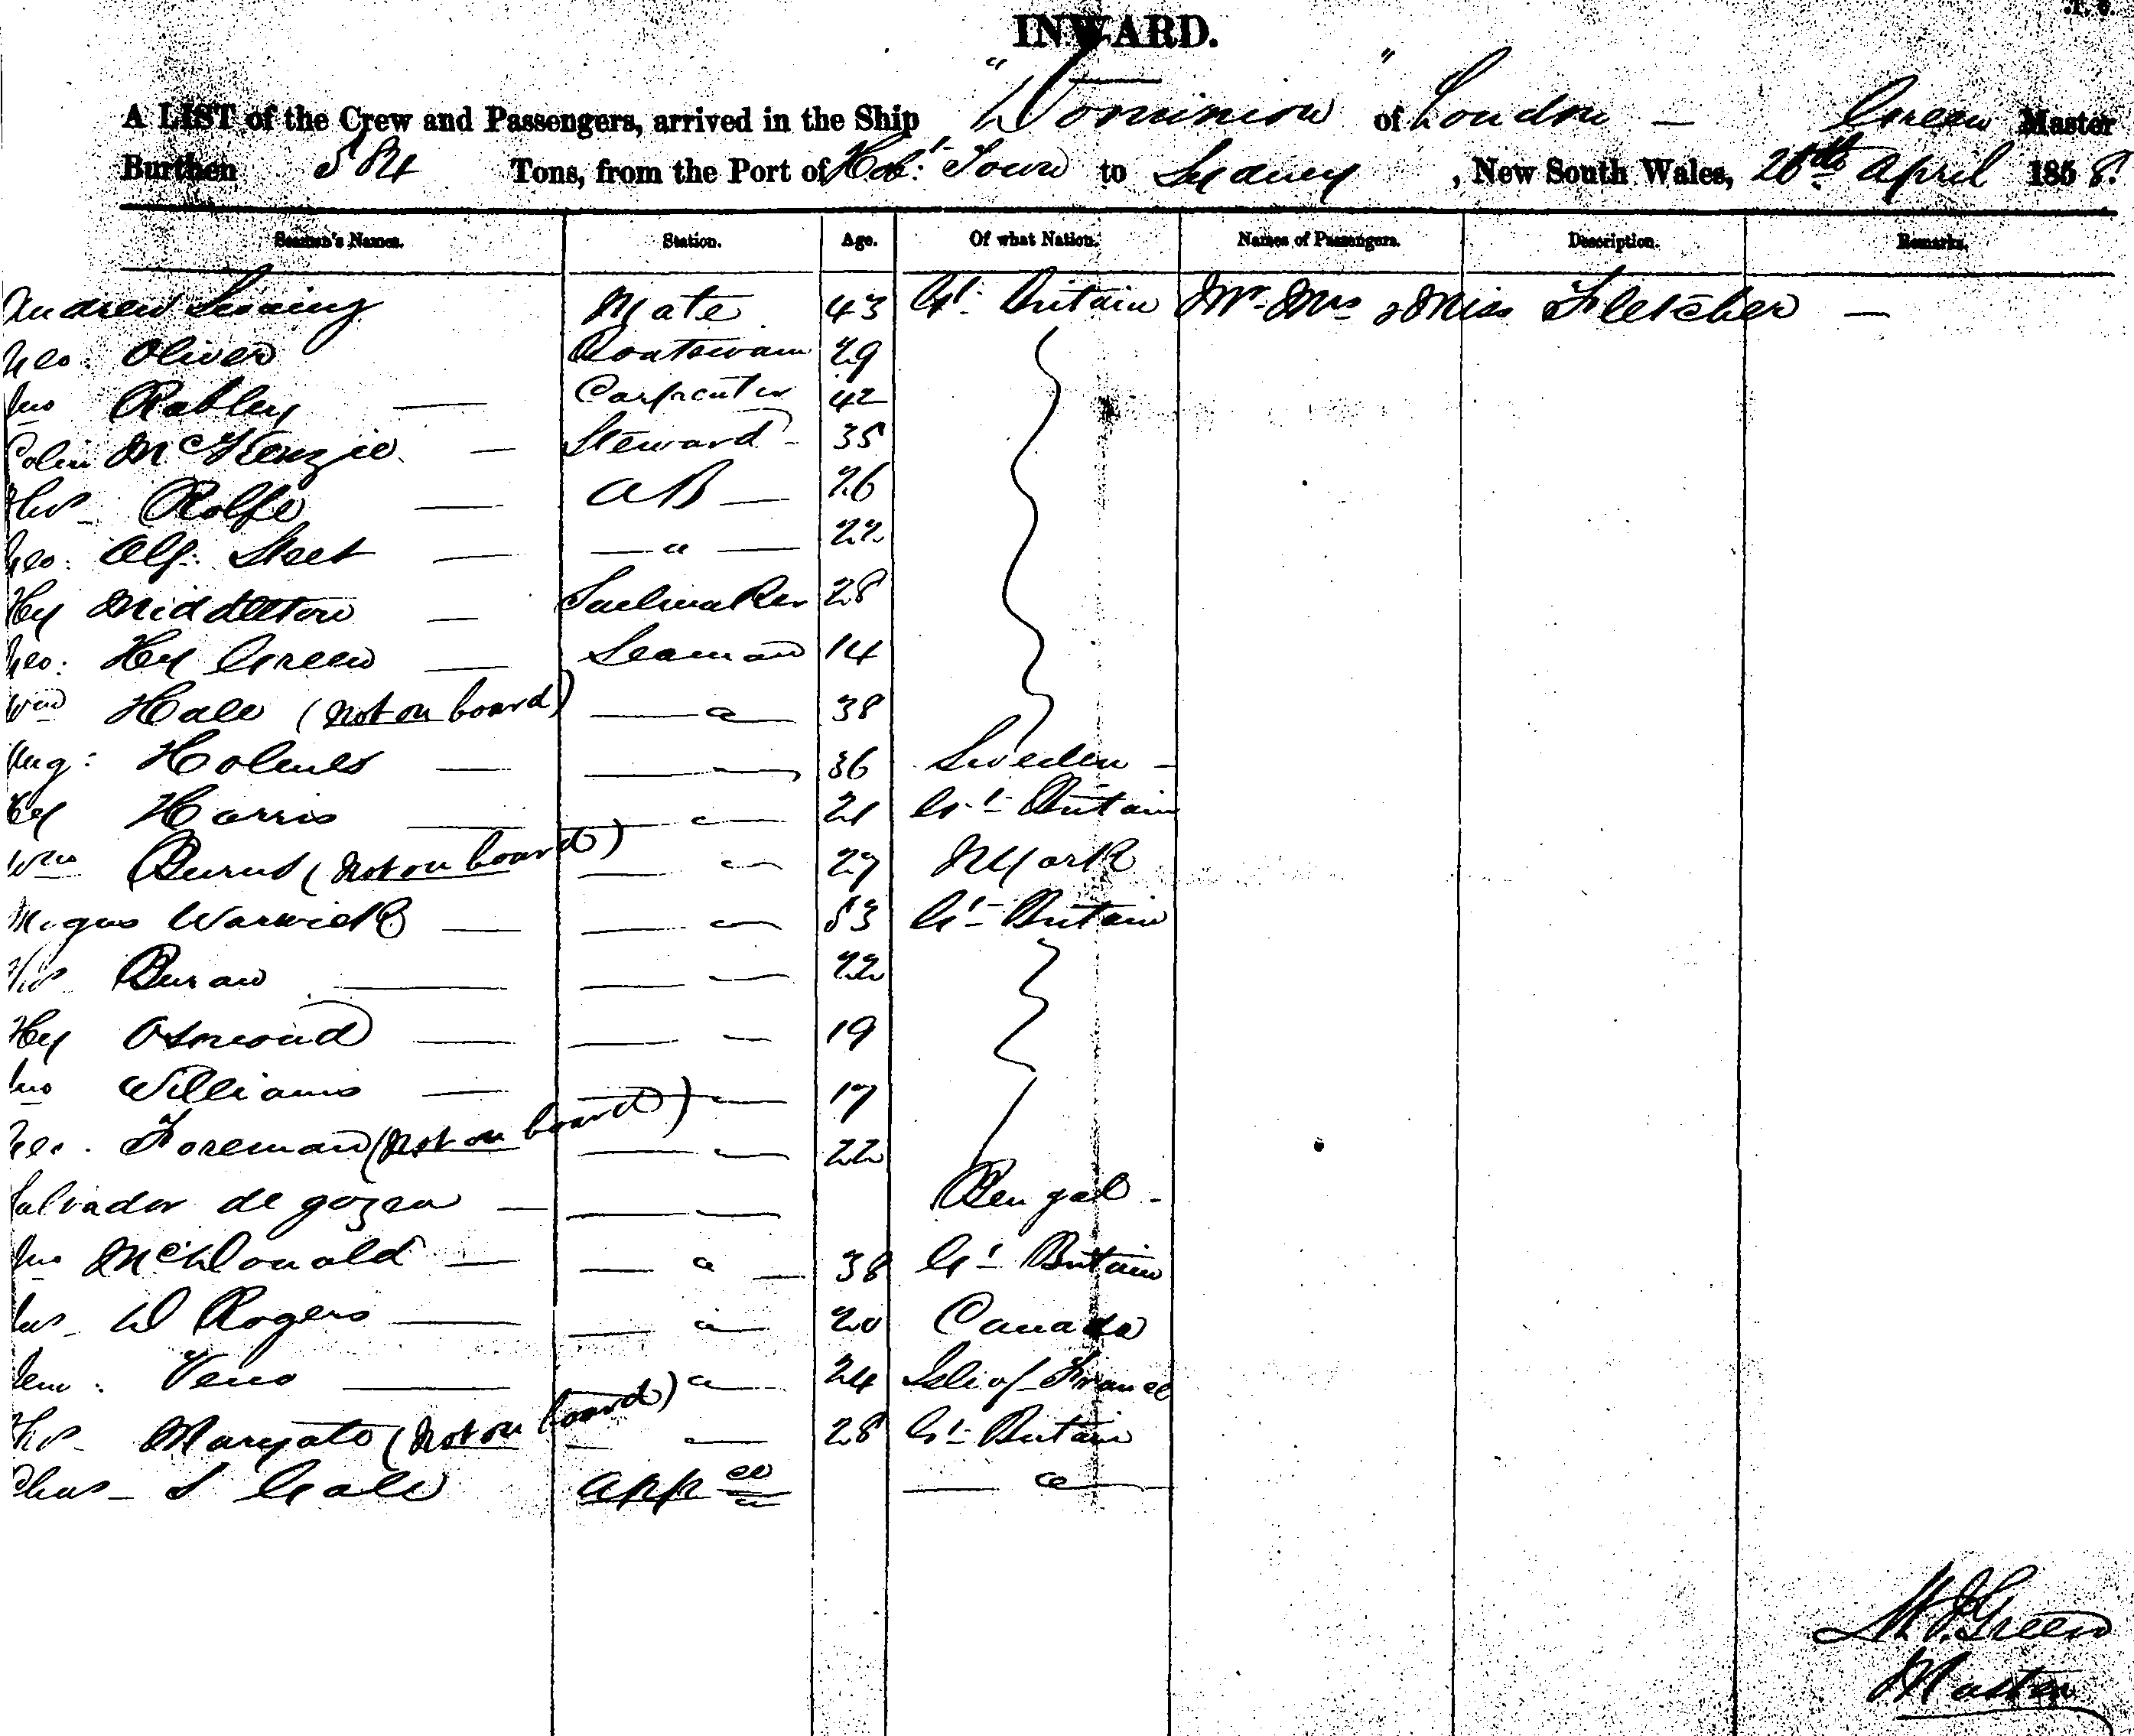 INWARD.
A LIST of the Crew and Passengers, arrived in the Ship "Dominion" of London — Green Master
Burthen 584 Tons, from the Port of Hob:t Town to Sydney, New South Wales, 26th April 1858.
Seamen's Names. Station. Age. Of what Nation. Names of Passengers. Description. Remarks.
Andrew Mate 43 Gt. Britain Mr. Mrs & Miss Fletcher —
Geo: Oliver Boatswain 29
Jno Rabley — Carpenter 42
Colin McKenzie — Steward - 35
Thos Rolfe — AB — 26
Geo: Alf: Steet — — " — 22
Hy Middleton — Sailmaker 28
Geo: Hy Green — Seaman 14
Wm Hall (Not on board) — " — 38
Aug: Holmes — — " 36 Sweden -
Hy Harris — — " — 21 Gt. Britain
Wm Burns (Not on board) — " 27 N York
Warwick — — " 53 Gt. Britain
Thos — — " 22
Hy Osmond — — " 19
Jno Williams — — " — 17
Geo. Foreman (Not on board) — " 22
Salvador de — — " Bengal -
Jno McDonald — — " — 38 Gt. Britain
Jas W Rogers — — " 20 Canada
Veno — " 24 Isle of France
Thos (Not on board) — " 28 Gt. Britain
Chas S Gale appce — " —
Green
Master